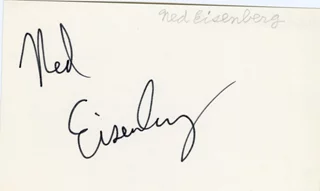 Ned Eisenberg
Ned
Eisenberg